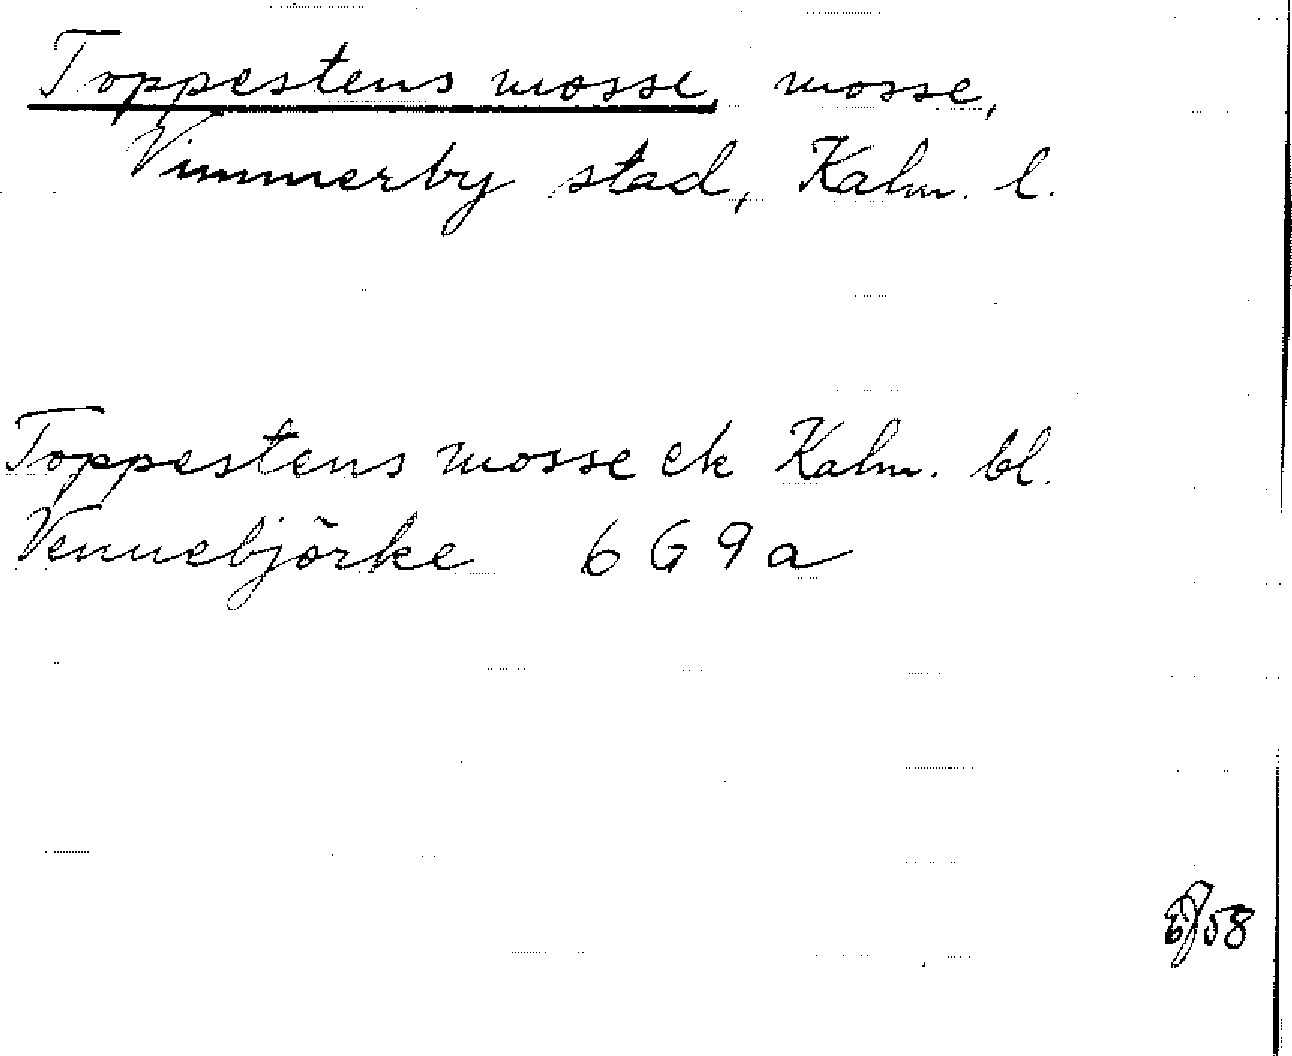 Toppestens mosse, mosse,
Vimmerby stad, Kalm. l.
Toppestens mosse ek Kalm. bl.
Vennebjörke 6 G 9 a
58